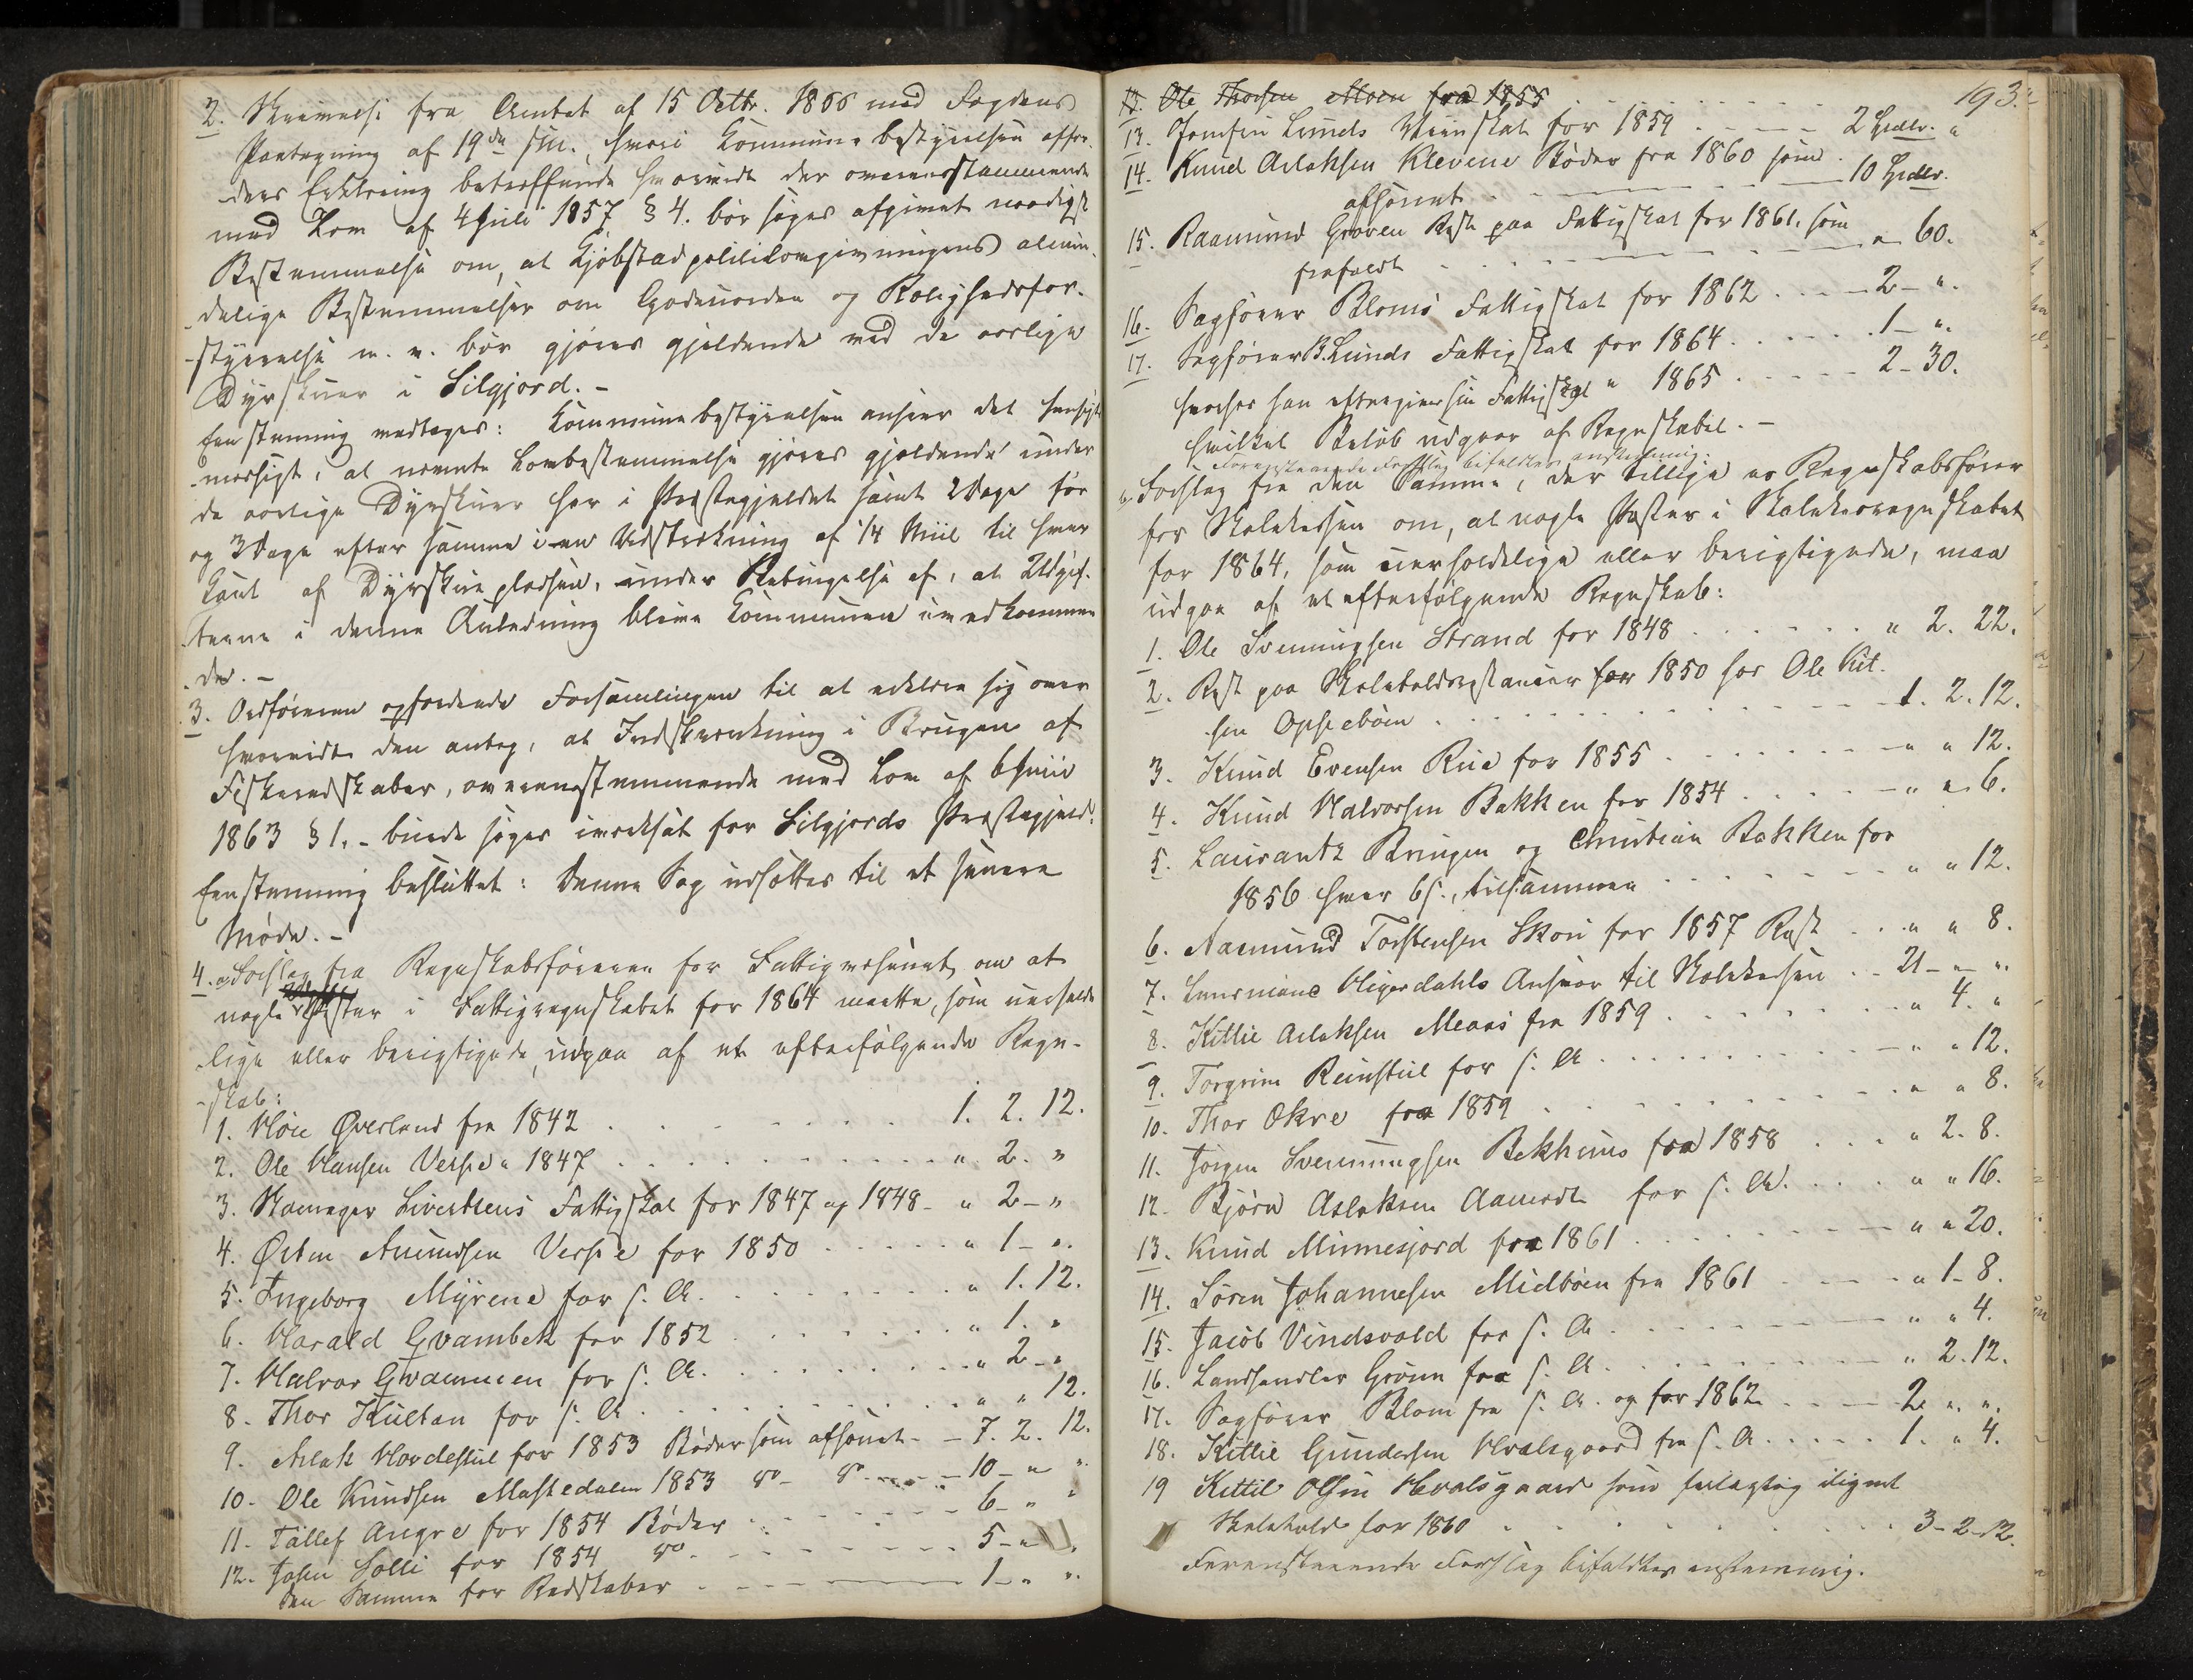 2. Skrivelse fra Amtet af 15 Octbr. 1866 med Fogdens
Paategning af 19de s.M., hvori Kommunebestyrelsen affor-
dres Erklæring betræffende hvorvidt der overensstemmende
med Lov af 4 Juli 1857 § 4. bør søges afgivet naadigst
Bestemmelse om, at Kjøbstadpolitilovgivningens almin-
delige Bestemmelser om Gadeuorden og Rolighedsfor-
styrrelse m. v. bør gjøres gjeldende ved de aarlige
Dyrskuer i Silgjord. -
Eenstemmig vedtages: Kommunebestyrelsen anseer det hensigts
mæssigt, at nævnte Lovbestemmelse gjøres gjeldende under
de aarlige Dyrskuer her i Præstegjeldet samt 2 Dage før
og 3 Dage efter samme i en Udstrækning af 1/4 Miil til hver
Kant af Dyrskuepladsen, under Betingelse af, at Udgif-
terne i denne Anledning blive Kommunen uvedkommen
de. -
3. Ordføreren opfordrede Forsamlingen til at erklære sig over
hvorvidt den antog, at Indskrænkning i Brugen af
Fiskeredskaber, overensstemmende med Lov af 6 Juni
1863 § 1. - burde søges iværksat for Silgjords Præstegjeld.
Eenstemmig besluttet: Denne Sag udsættes til et senere
Møde. -
4. a, Forslag fra Regnskabsføreren for Fattigvæsenet, om at
nogle Poster i Fattigregnskabet for 1864 maatte, som uerholde
lige eller berigtigede, udgaa af et efterfølgende Regn-
skab:
1. Høie Øverland fra 1842 . . . 1. 2. 12.
2. Ole Hansen Versto " 1847 . . . " 2. "
3. Kamager Sivertsens Fattigskat for 1847 og 1848 - " 2 - "
4. Østen Amundsen Verpe for 1850 . . . " 1 - ".
5. Ingeborg Myrene for s. A. . . . " 1. 12.
6. Harald Gvambek for 1852 . . . " 1. "
7. Halvor Gvammen for s. A. . . . " 2 - "
8. Thor Kultan for s. A . . . " " 12.
9. Aslak Hovdestul for 1853 Bøder som afsonet - - 7. 2. 12.
10. Ole Knudsen Mastedalen 1853 do - do . . - 10 - " "
11. Tallef Angre for 1854 Bøder . . . 6 - " "
12. Johen Solli for 1854 do. . . . 5 - " "
den Samme for Redskaber . . . 1 - " "
193.
12. Ole Thorsen Moen fra 1855
13. Jomfru Lunds Veienskat for 1859 . . . 2 Spdlr. "
14. Knud Aslaksen Klevene Bøder fra 1860 som
afsonet . . . 10 Spdlr.
15. Raamund Groven Rest paa Fattigskat for 1861, som
frafaldt . . . " 60.
16. Sagfører Bloms Fattigskat for 1862 . . . 2 - ".
17. Sagfører B. Lunds Fattigskat for 1864 . . . 1 - ".
hvorhos han eftergives sin Fattigskat " 1865 . . . 2 - 30.
hvilket Beløb udgaar af Regnskabet. -
Forenstaaende Forslag bifaldtes enstemmig.
b, Forslag fra den Samme, der tillige er Regnskabsfører
for Skolekassen om, at nogle Poster i Skolekasseregnskabet
for 1864, som uerholdelige eller berigtigede, maa
udgaa af et efterfølgende Regnskab:
1. Ole Svenningsen Strand for 1848 . . . " 2. 22.
2. Rest paa Skoleholdsrestancer for 1850 hos Ole Kit-
sen Opsebøen . . . 1. 2. 12.
3. Knud Evensen Rue for 1855 . . . " " 12.
4. Knud Halvorsen Bakken for 1854 . . . " " 6.
5. Laurantz Bringen og Christian Bakken for
1856 hver 6 s., tilsammen . . . " " 12.
6. Aasmund Torstensen Skori for 1857 Rest . . . " " 8.
7. Lensmand Vigerdahls Ansvar til Skolekassen . . 21 - " - ".
8. Kittil Aslaksen Meaas fra 1859 . . . " 4. "
9. Torgrim Reinstul for s. A . . . " " 12.
10. Thor Økre fra 1859 . . . " " 8.
11. Jørgen Svenningsen Bekhuus fra 1858 . . . " 2. 8.
12. Bjørn Aslaksen Aamodt for s. A. . . . " " 16.
13. Knud Minnesjord fra 1861 . . . " " 20.
14. Søren Johannesen Midbøen fra 1861 . . . " 1 - 8.
15. Jacob Vindsvold for s. A . . . " " 4.
16. Landhandler Grønn fra s. A. . . . " 2. 12.
17. Sagfører Blom fra s. A. og for 1862 . . . 2. ". ".
18. Kittil Gundersen Hvalsgaard fra s. A . . . 1. " 4.
19 Kittil Olsen Hvalsgaard som feilagtig ilignet
Skolehold for 1860 . . . 3 - 2 - 12.
Forenstaaende Forslag bifaldtes enstemmig.